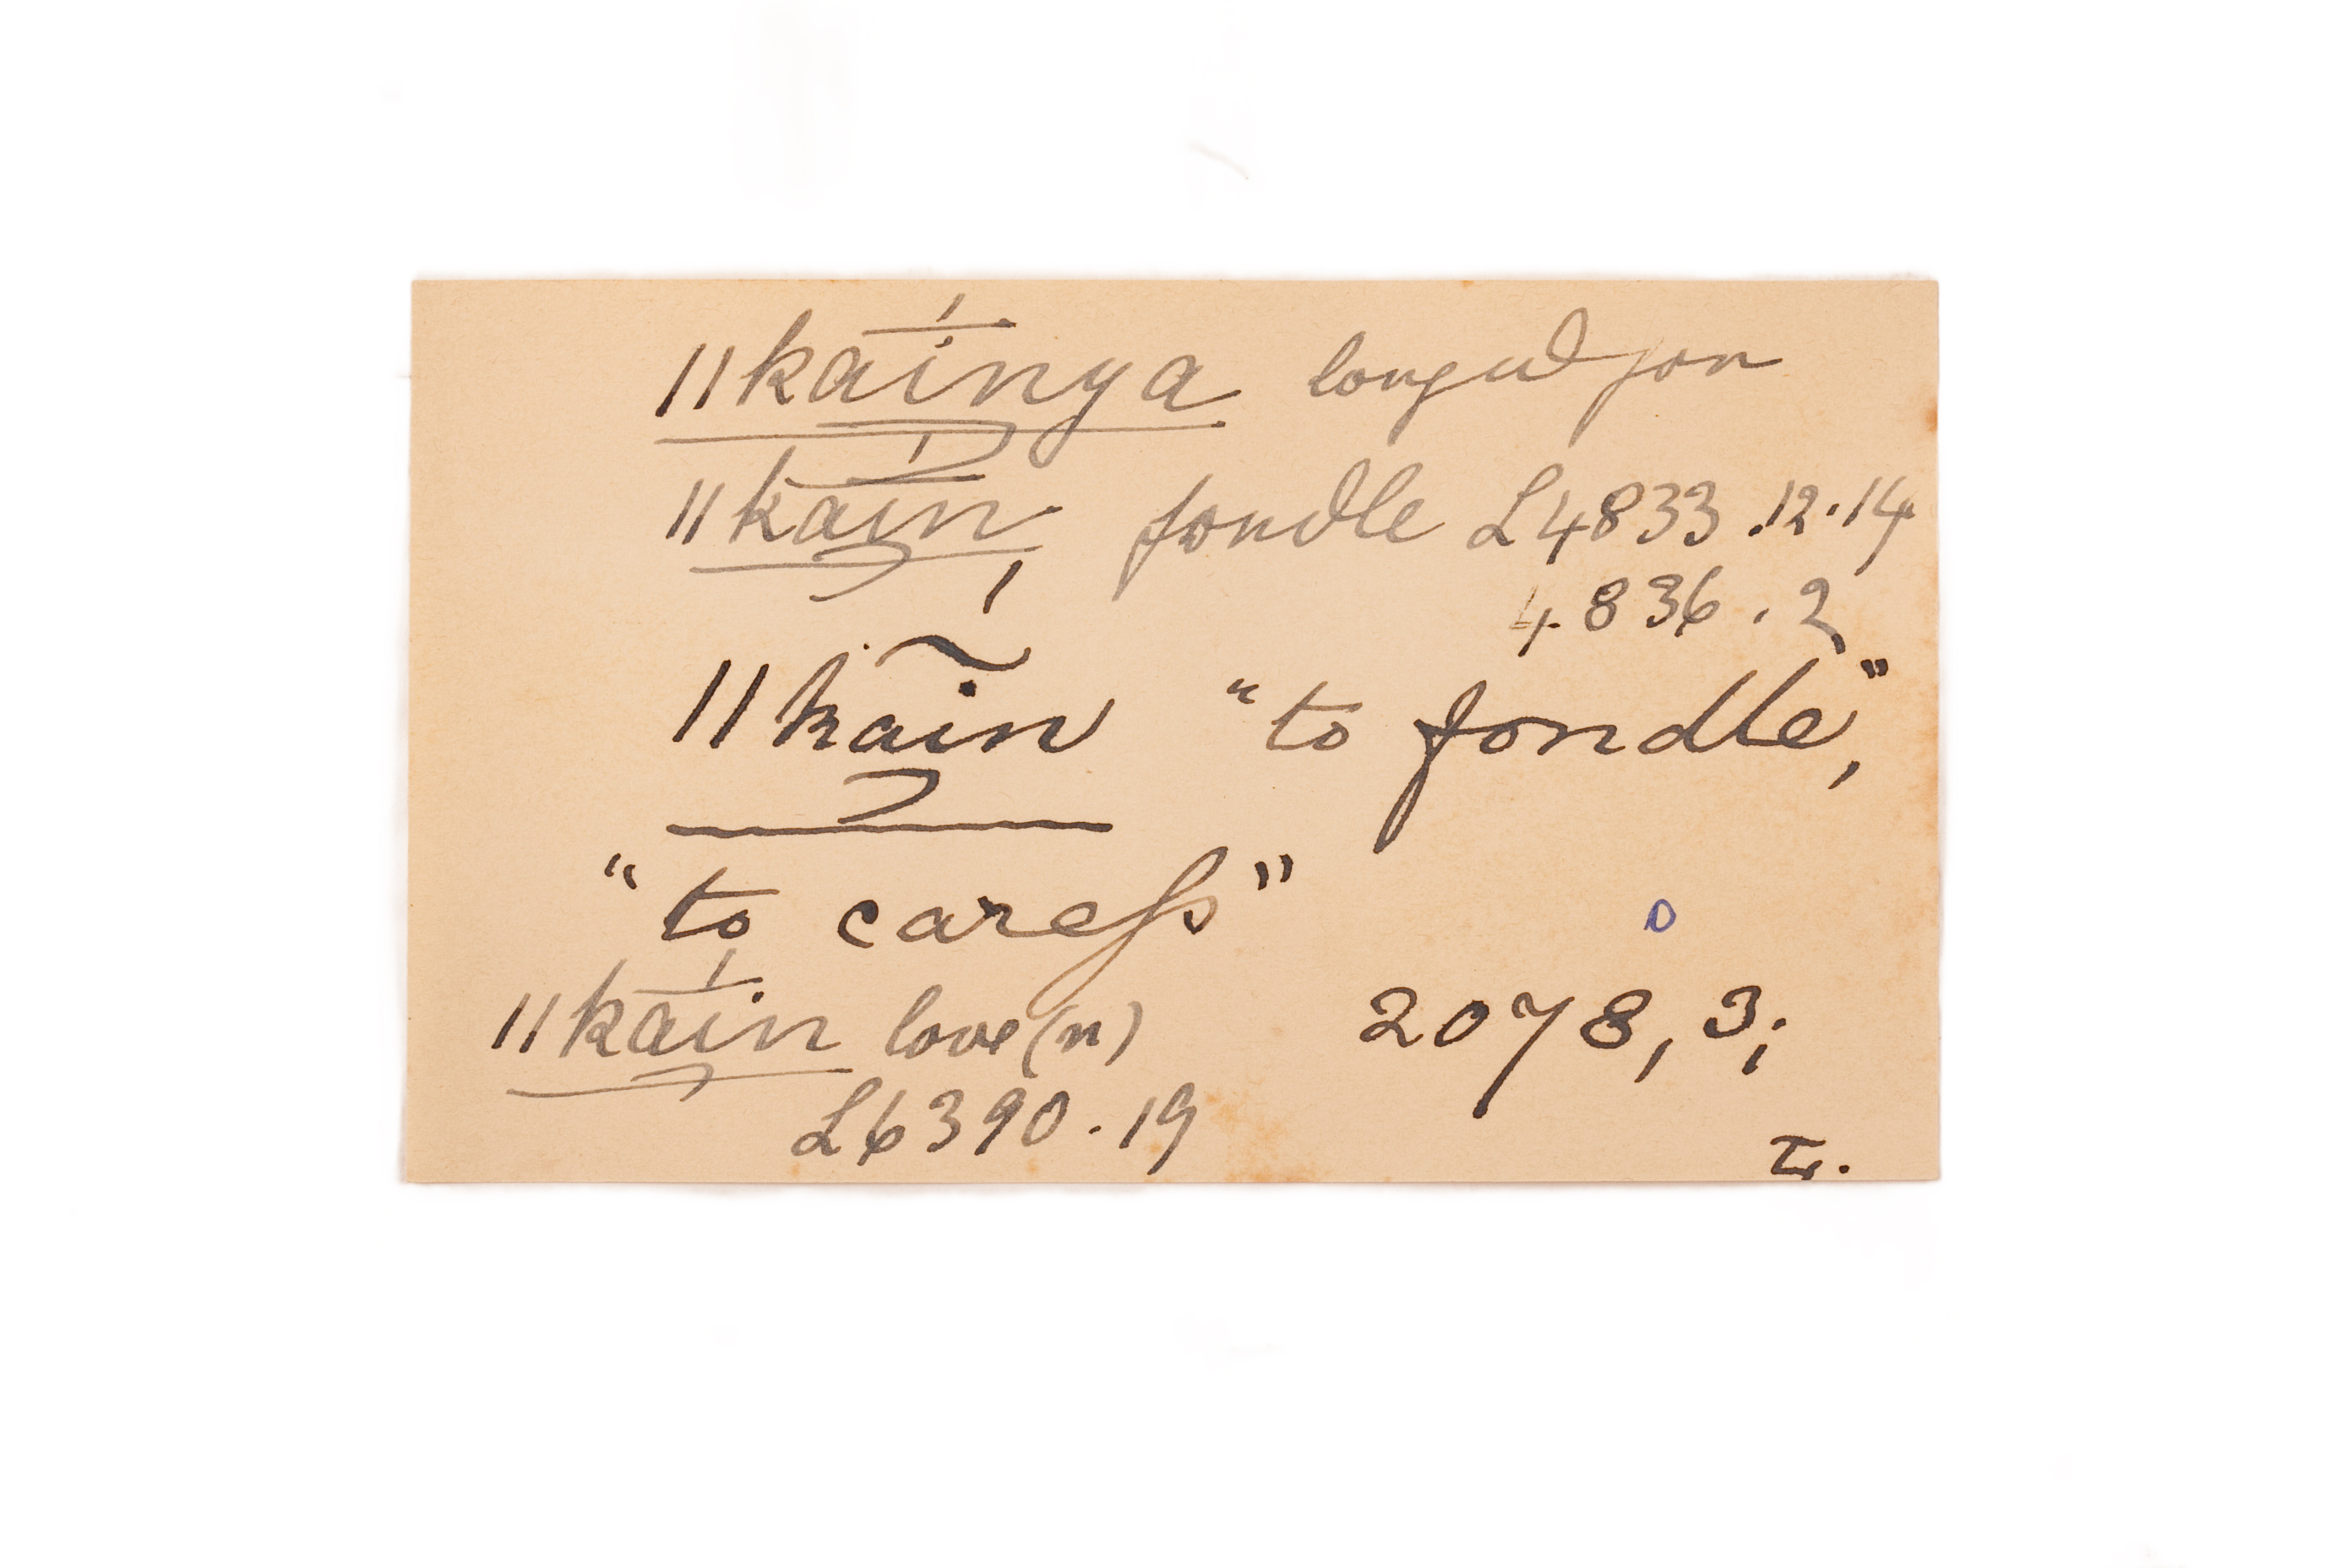 ||kainya longed for
||kain, fondle L4833.12.14
4836.2
||kain "to fondle,"
"to caress"
D
||kain love (n) 2078, 3;
L6390.19
Tr.